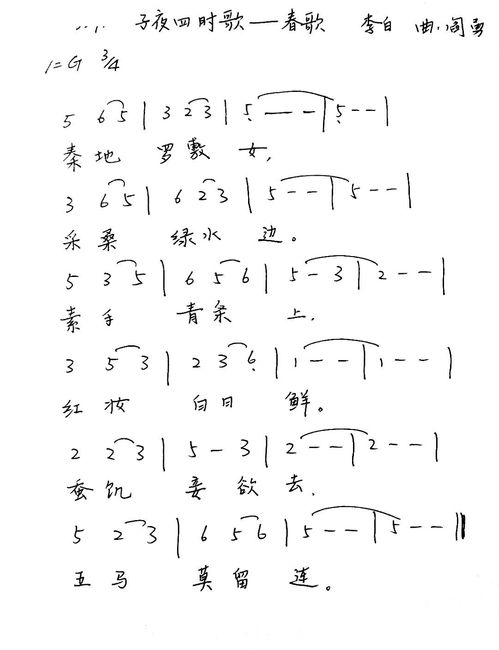 子夜四时歌——春歌 李白 曲:阎勇
1=G 3/4
5 65 | 3 23 | 5 — — | 5 - - |
秦地 罗敷 女,
3 65 | 6 23 | 5 - - | 5 - - |
采桑 绿水 边。
5 35 | 6 56 | 5 - 3 | 2 - - |
素手 青条 上,
3 53 | 2 36 | 1 - - | 1 - - |
红妆 白日 鲜。
2 23 | 5 - 3 | 2 - - | 2 - - |
蚕饥 妾欲 去,
5 23 | 6 56 | 5 - - | 5 - - ||
五马 莫留 连。